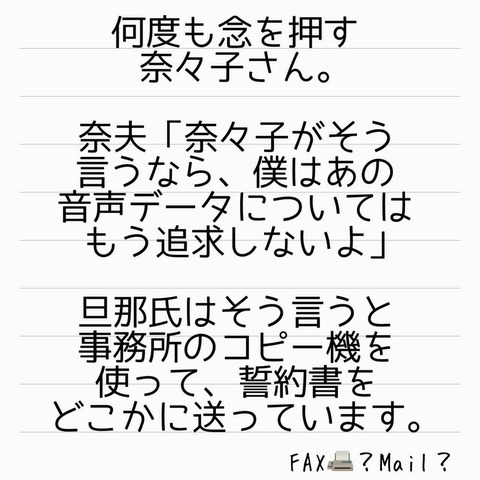 何度も念を押す
奈々子さん。
奈夫「奈々子がそう
言うなら、僕はあの
音声データについては
もう追求しないよ」
旦那氏はそう言うと
事務所のコピー機を
使って、誓約書を
どこかに送っています。
FAX📠？Mail？